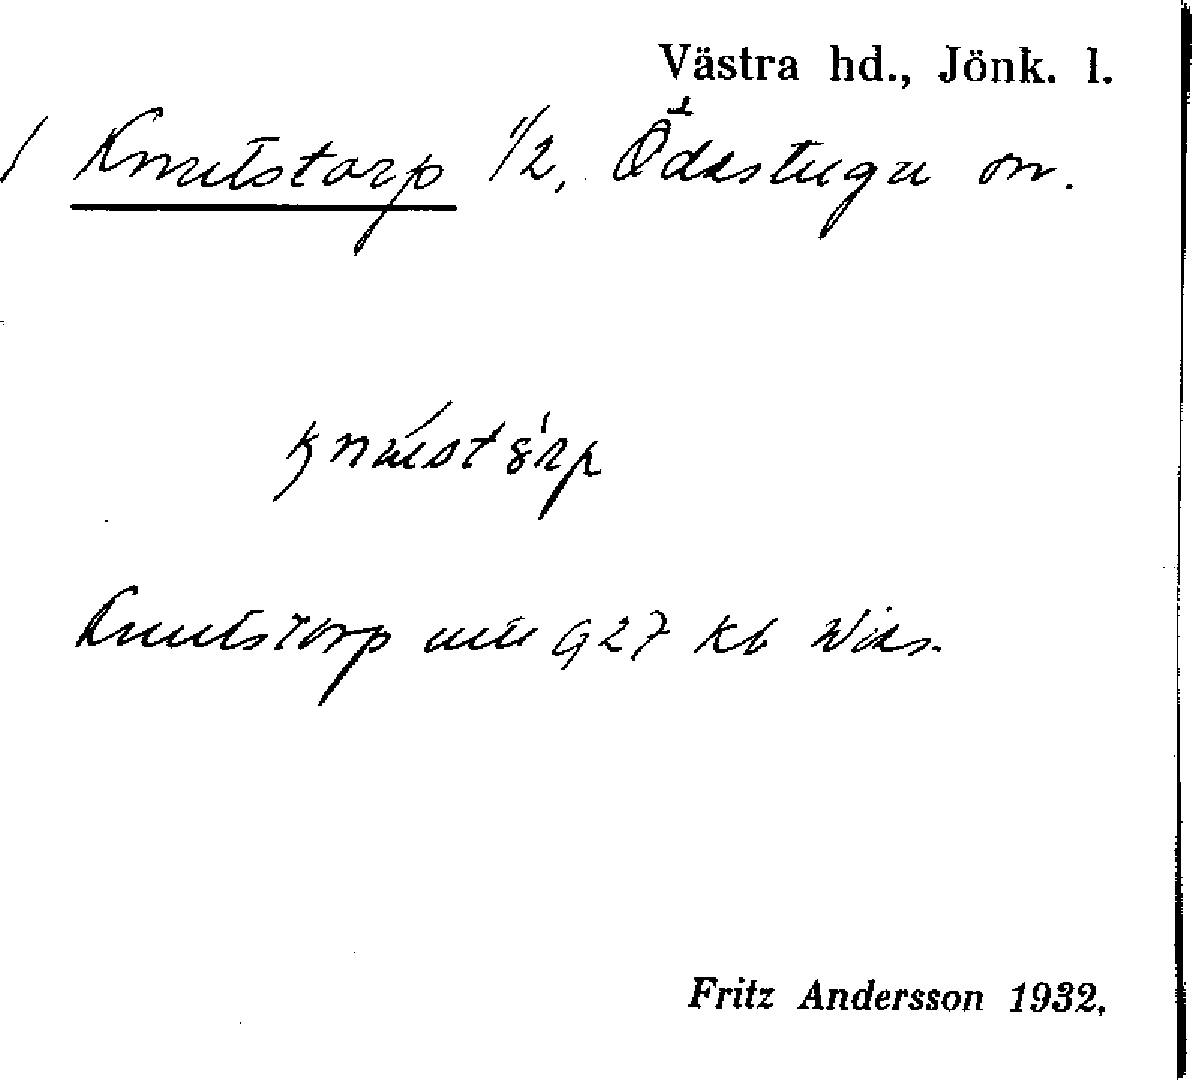 Västra hd., Jönk. l.
Knutstorp 1/2, Ödestugu sn.
Knutstorp 927 Kb
Fritz Andersson 1932.